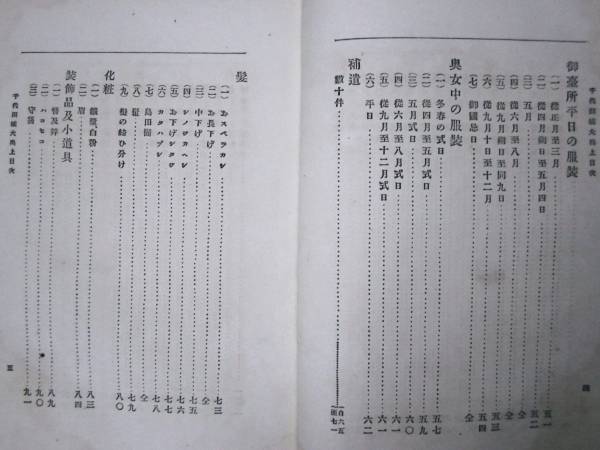 千代田城大奥上目次
御臺所平日の服裝
(一) 從正月至三月 五一
(二) 從四月朔日至五月四日 五二
(三) 五月 仝
(四) 從六月至八月 仝
(五) 從九月朔日至同九日 五三
(六) 從九月十日至十二月 五四
(七) 御國忌日 仝
奥女中の服裝
(一) 冬春の式日 五七
(二) 從四月至五月式日 五九
(三) 五月式日 六〇
(四) 從六月至八月式日 六一
(五) 從九月至十二月式日 六一
(六) 平日 六二
補遺
數十件 自六五至七一
四
髮
(一) おスベラカシ 七三
(二) お長下げ 仝
(三) 中下げ 七五
(四) シノワカヘシ 七六
(五) お下げシタワ 七七
(六) カタハヅシ 七八
(七) 島田髷 仝
(八) 髱 七九
(九) 髮の結ひ分け 八〇
化粧
(一) 鐵漿白粉 八三
(二) 眉 八四
裝飾品及小道具
(一) 八九
(二) ハコセコ 九〇
(三) 守袋 九一
千代田城大奥上目次
五